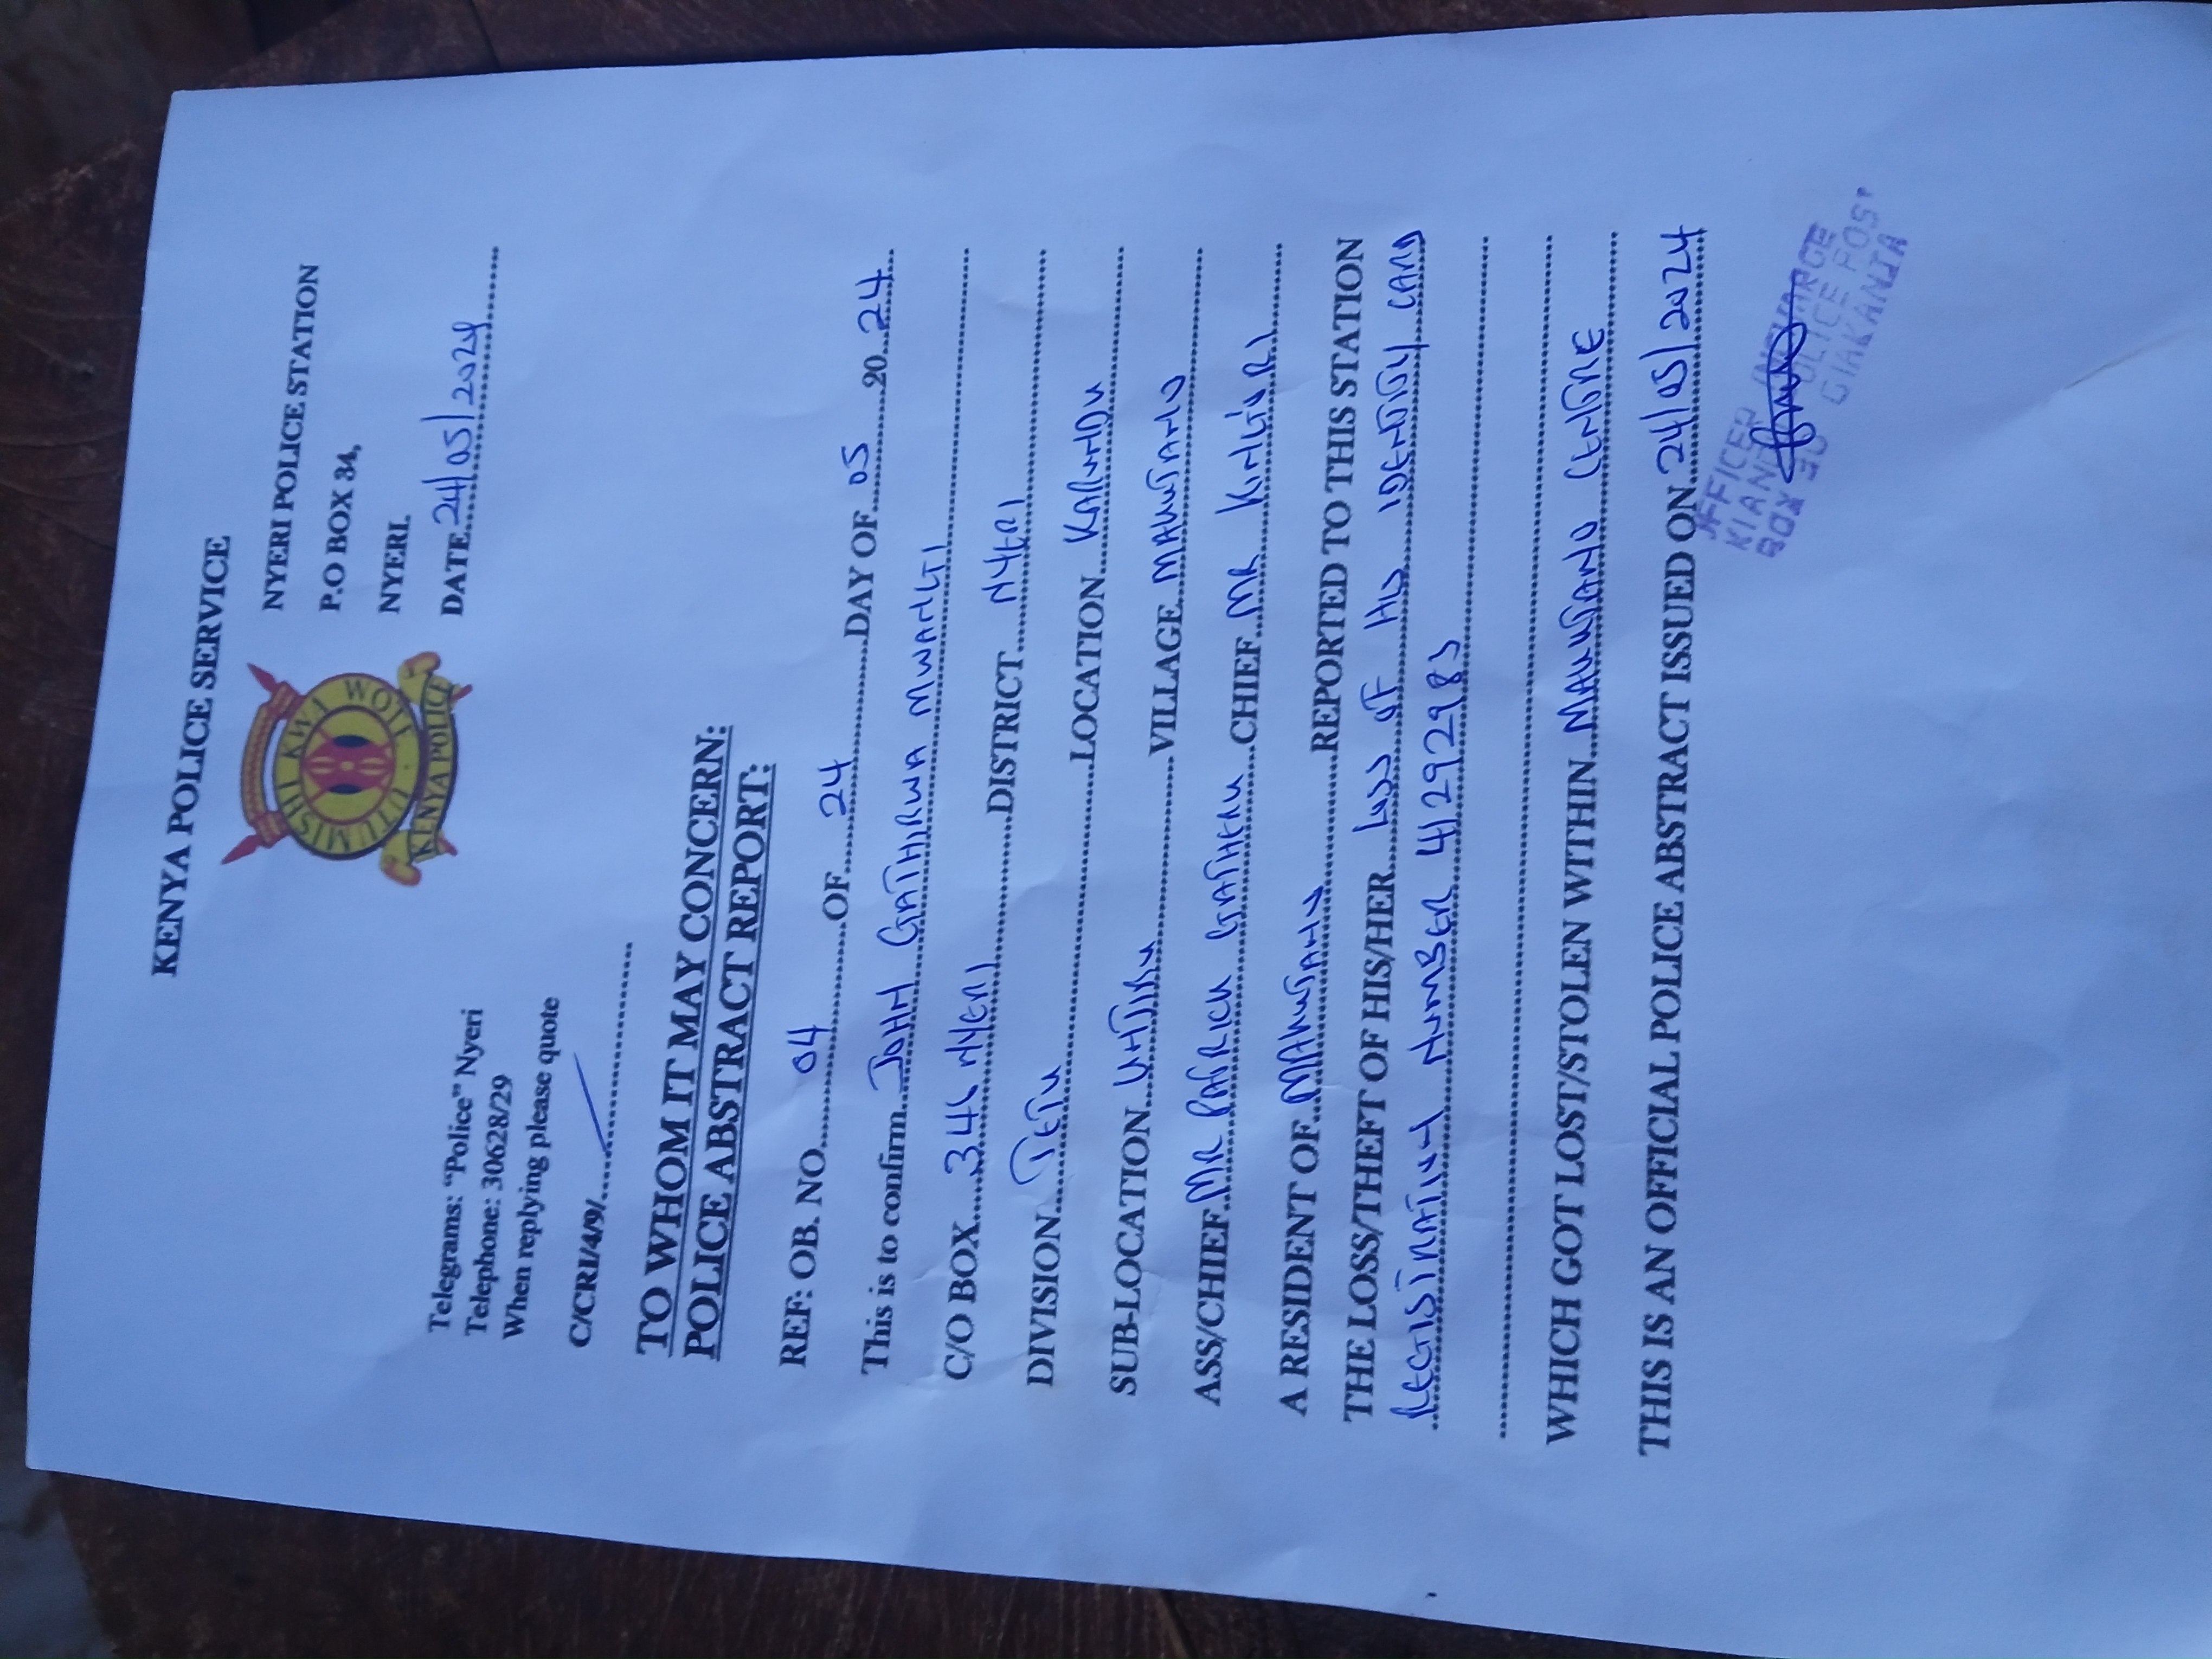 KENYA POLICE SERVICE
UTUMISHI KWA WOTE
KENYA POLICE
NYERI POLICE STATION
P.O BOX 34,
NYERI.
DATE 24/05/2024
Telegrams: “Police” Nyeri
Telephone: 30628/29
When replying please quote
C/CRI/4/9/
TO WHOM IT MAY CONCERN:
POLICE ABSTRACT REPORT:
REF: OB. NO 04 OF 24 DAY OF 05 20 24
This is to confirm JOHN GATHIRWA MWANGI
C/O BOX 346 NYERI DISTRICT NYERI
DIVISION TETU LOCATION KARUNDU
SUB-LOCATION VILLAGE MAKUTANO
ASS/CHIEF MR PATRICK GATHERU CHIEF MR KING'ORI
A RESIDENT OF MAKUTANO REPORTED TO THIS STATION
THE LOSS/THEFT OF HIS/HER LOSS OF HIS IDENTITY CARD
REGISTRATION NUMBER 41292983
WHICH GOT LOST/STOLEN WITHIN MAKUTANO CENTRE
THIS IS AN OFFICIAL POLICE ABSTRACT ISSUED ON 24/05/2024
OFFICER INCHARGE
POLICE POST
BOX GIAKANJA